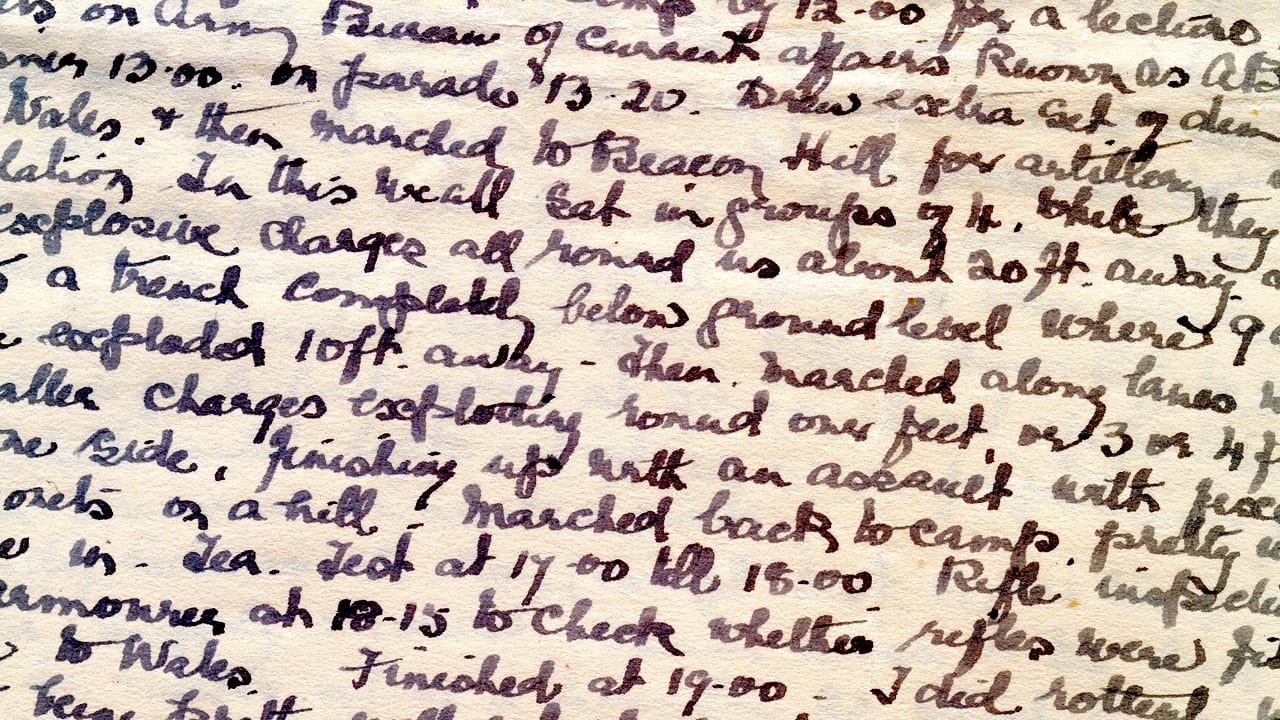 on Army Bureau of current affairs Known as AB
camp by 12-00 for a lecture
13-00. on parade 13-20. Drew extra set of
Wales. & then marched to Beacon Hill for artillery
lation In this we all sat in groups of 4. while they
explosive charges all round us about 20ft. away.
a trench completely below ground level where 9
exploded 10ft. away - then. marched along lanes
aller charges exploding round our feet, or 3 or 4 f
ne side, finishing up with an assault with fixe
onets on a hill. Marched back to camp. pretty
in. Tea. Test at 17-00 till 18-00 Rifle inspecti
armourer at 18-15 to check whether rifles were fit
to Wales. Finished at 19-00 - I did rotten